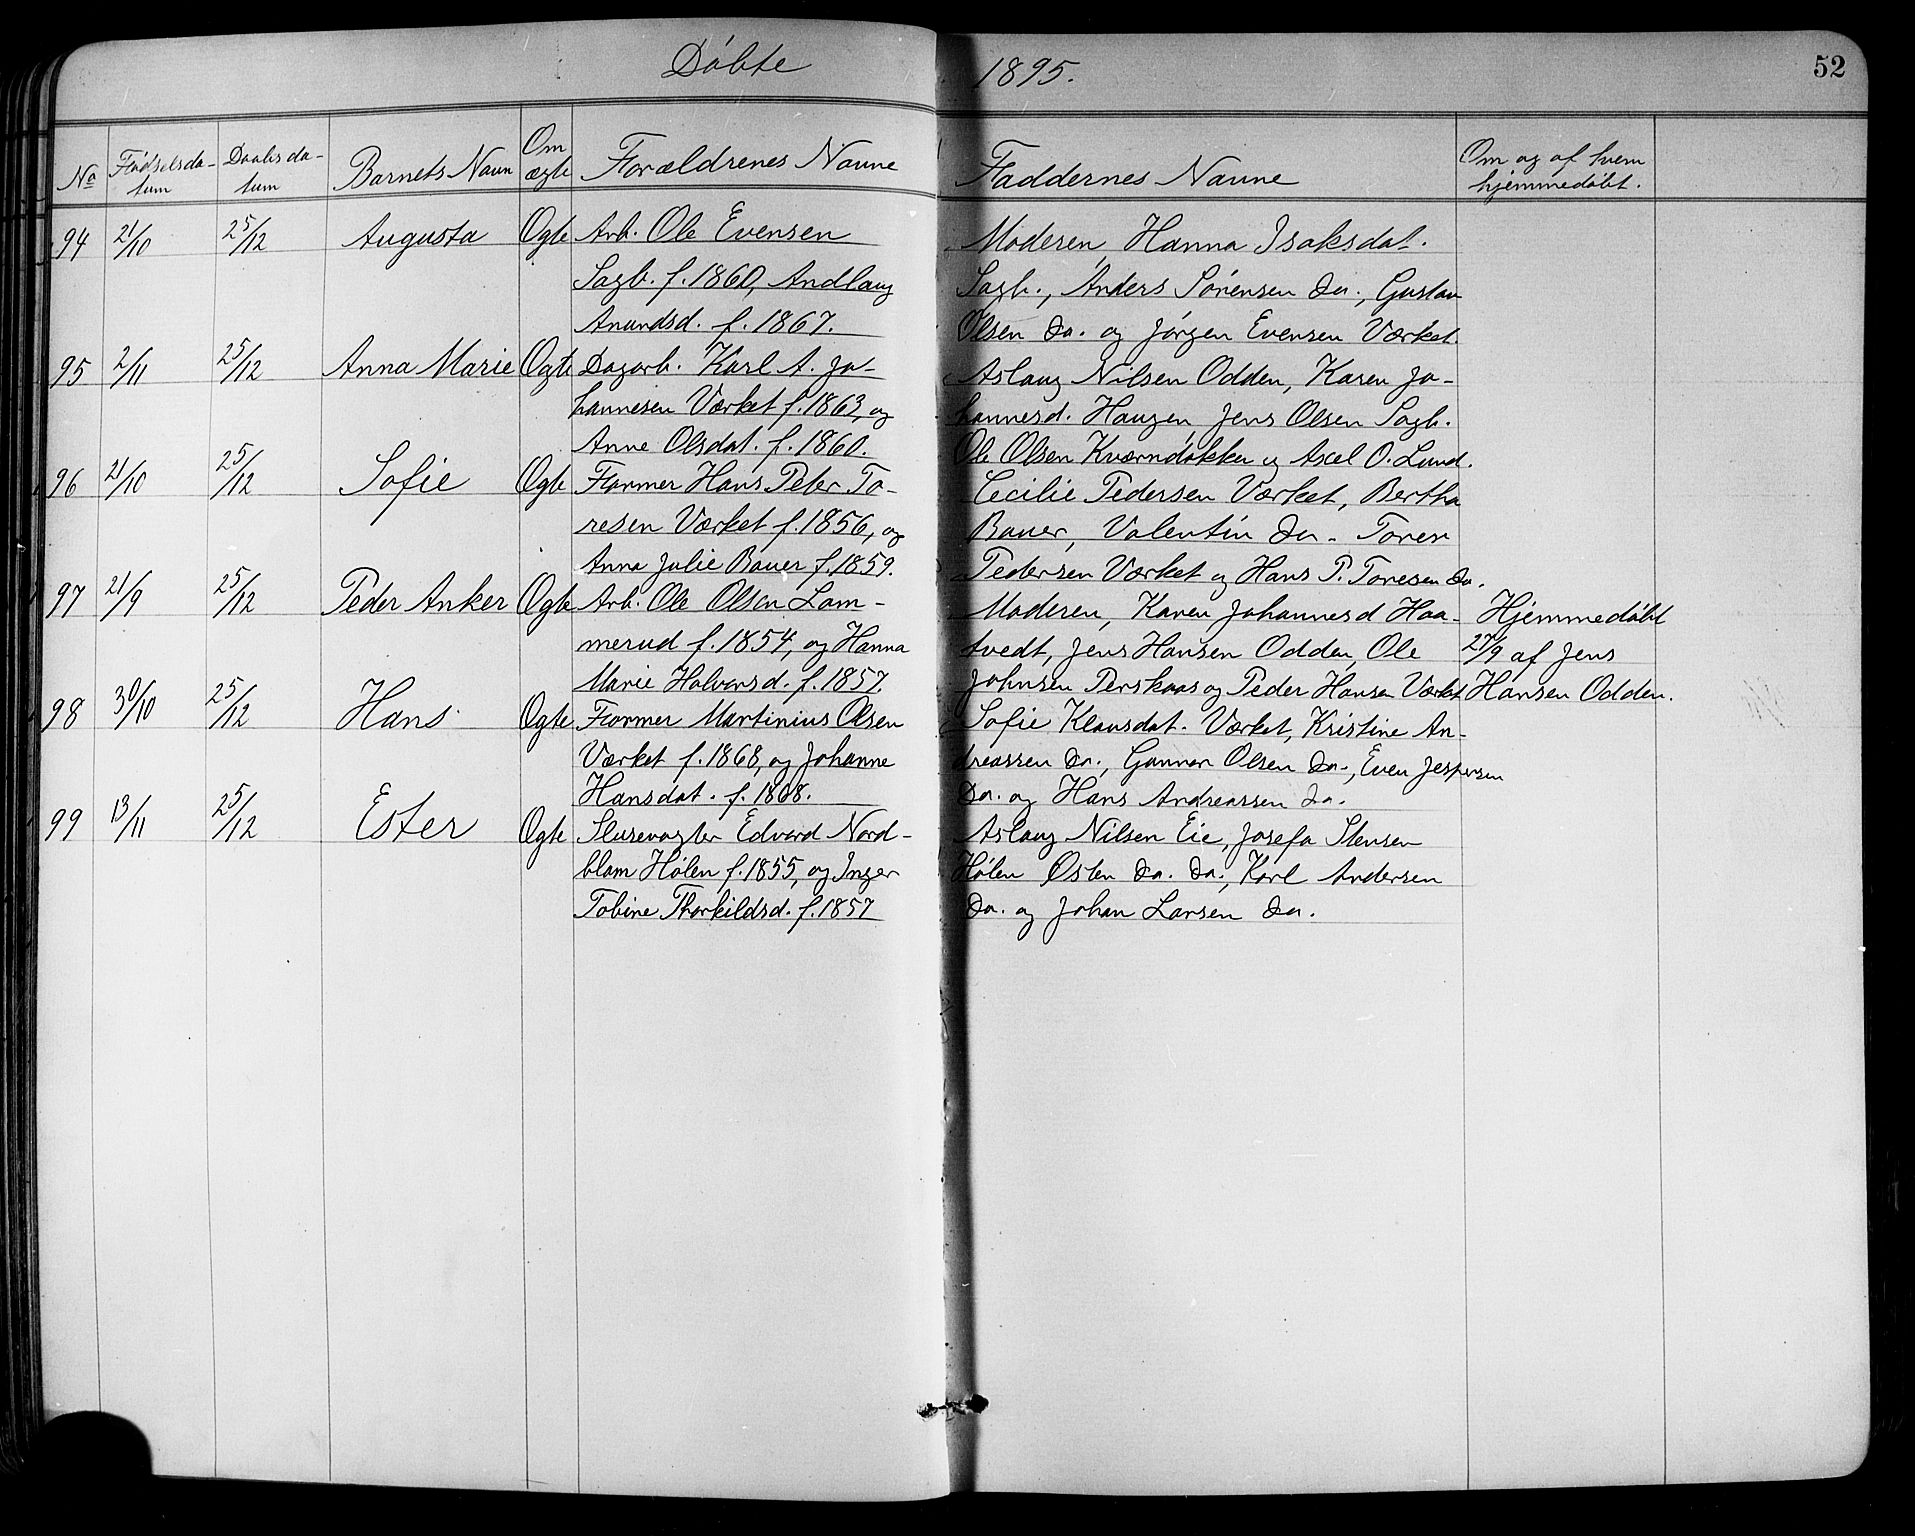 Döbte 1895.
52
No Fødselsdatum Daabsdatum Barnets Navn Om ægte Forældrenes Navne Faddernes Navne Om og af hvem hjemmedöbt.
94 21/10 25/12 Augusta Ogte Arb. Ole Evensen
Sagb. f. 1860, Andlaug
Anundsd. f. 1867.
Moderen, Hanna Isaksdat.
Sagb., Anders Sørensen do., Gustav
Olsen do. og Jørgen Evensen Værket.
95 2/11 25/12 Anna Marie Ogte Dagarb. Karl A. Jo-
hannesen Værket f. 1863, og
Anne Olsdat. f. 1860.
Aslaug Nilsen Odden, Karen Jo-
hannesd. Haugen, Jens Olsen Sagb.
Ole Olsen Kværndokken og Axel O. Lund.
96 21/10 25/12 Sofie Ogte Former Hans Peter To-
resen Værket f. 1856, og
Anna Julie Bauer f. 1859.
Cecilie Pedersen Værket, Bertha
Bauer, Valentin do. Torer
Pedersen Værket og Hans P. Toresen do.
97 21/9 25/12 Peder Anker Ogte Arb. Ole Olsen Lam-
merud f. 1854, og Hanna
Marie Halvorsd. f. 1857.
Moderen, Karen Johannesd Haa-
tvedt, Jens Hansen Odden, Ole
Johnsen Perskaas og Peder Hansen Værket
Hjemmedöbt
27/9 af Jens
Hansen Odden.
98 30/10 25/12 Hans Ogte Former Martinius Olsen
Værket f. 1868, og Johanne
Hansdat. f. 1868.
Sofie Klausdat. Værket, Kristine An-
dreassen do., Gunnar Olsen do., Even Jespersen
do. og Hans Andreassen do.
99 13/11 25/12 Ester Ogte Slusevogter Edvard Nord-
blom Hölen f. 1855, og Inger
Tobine Thorkildsd. f. 1857
Aslaug Nilsen Eie, Josefa Stensen
Hölen Østen do. do., Karl Andersen
do. og Johan Larsen do.